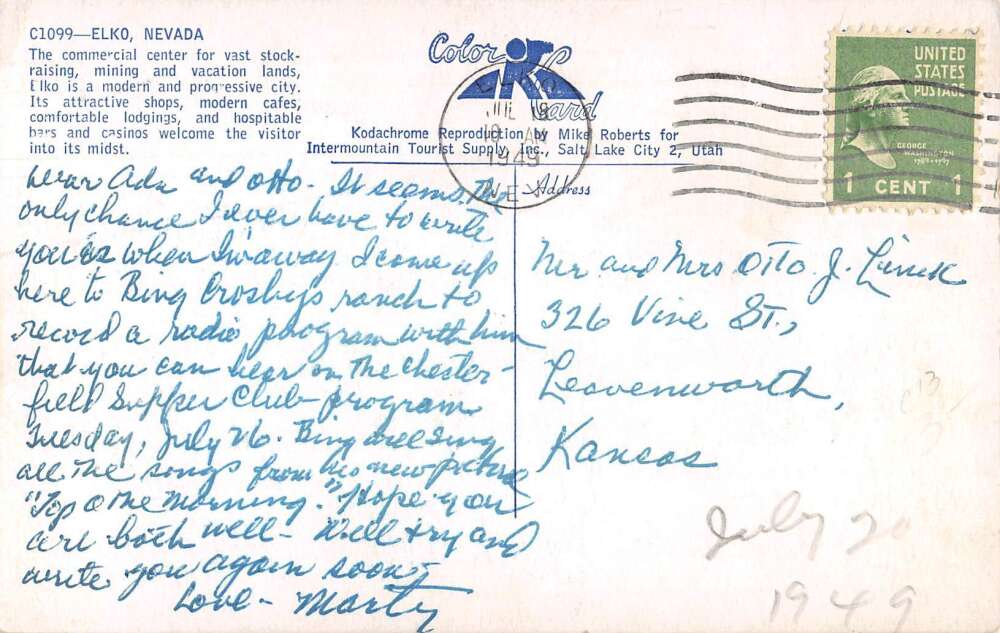 C1099—ELKO, NEVADA
The commercial center for vast stock-
raising, mining and vacation lands,
Elko is a modern and progressive city.
Its attractive shops, modern cafes,
comfortable lodgings, and hospitable
bars and casinos welcome the visitor
into its midst.
Color Kard
Kodachrome Reproduction by Mike Roberts for
Intermountain Tourist Supply, Inc., Salt Lake City 2, Utah
Address
ELKO
JUL 18
AM
1949
NEV.
UNITED
STATES
POSTAGE
GEORGE
WASHINGTON
1789-1797
1 CENT 1
Dear Ada and Otto - It seems the
only chance I ever have to write
you is when I'm away I come up
here to Bing Crosbys ranch to
record a radio program with him
that you can hear on The Chester-
field Supper Club program
Tuesday, July 26. Bing will sing
all the songs from his new picture
"Top O the Morning." Hope you
are both well - Will try and
write you again soon
Love - Marty
Mr and Mrs Otto J.
326 Vine St.,
Leavenworth,
Kansas
13
July 20
1949